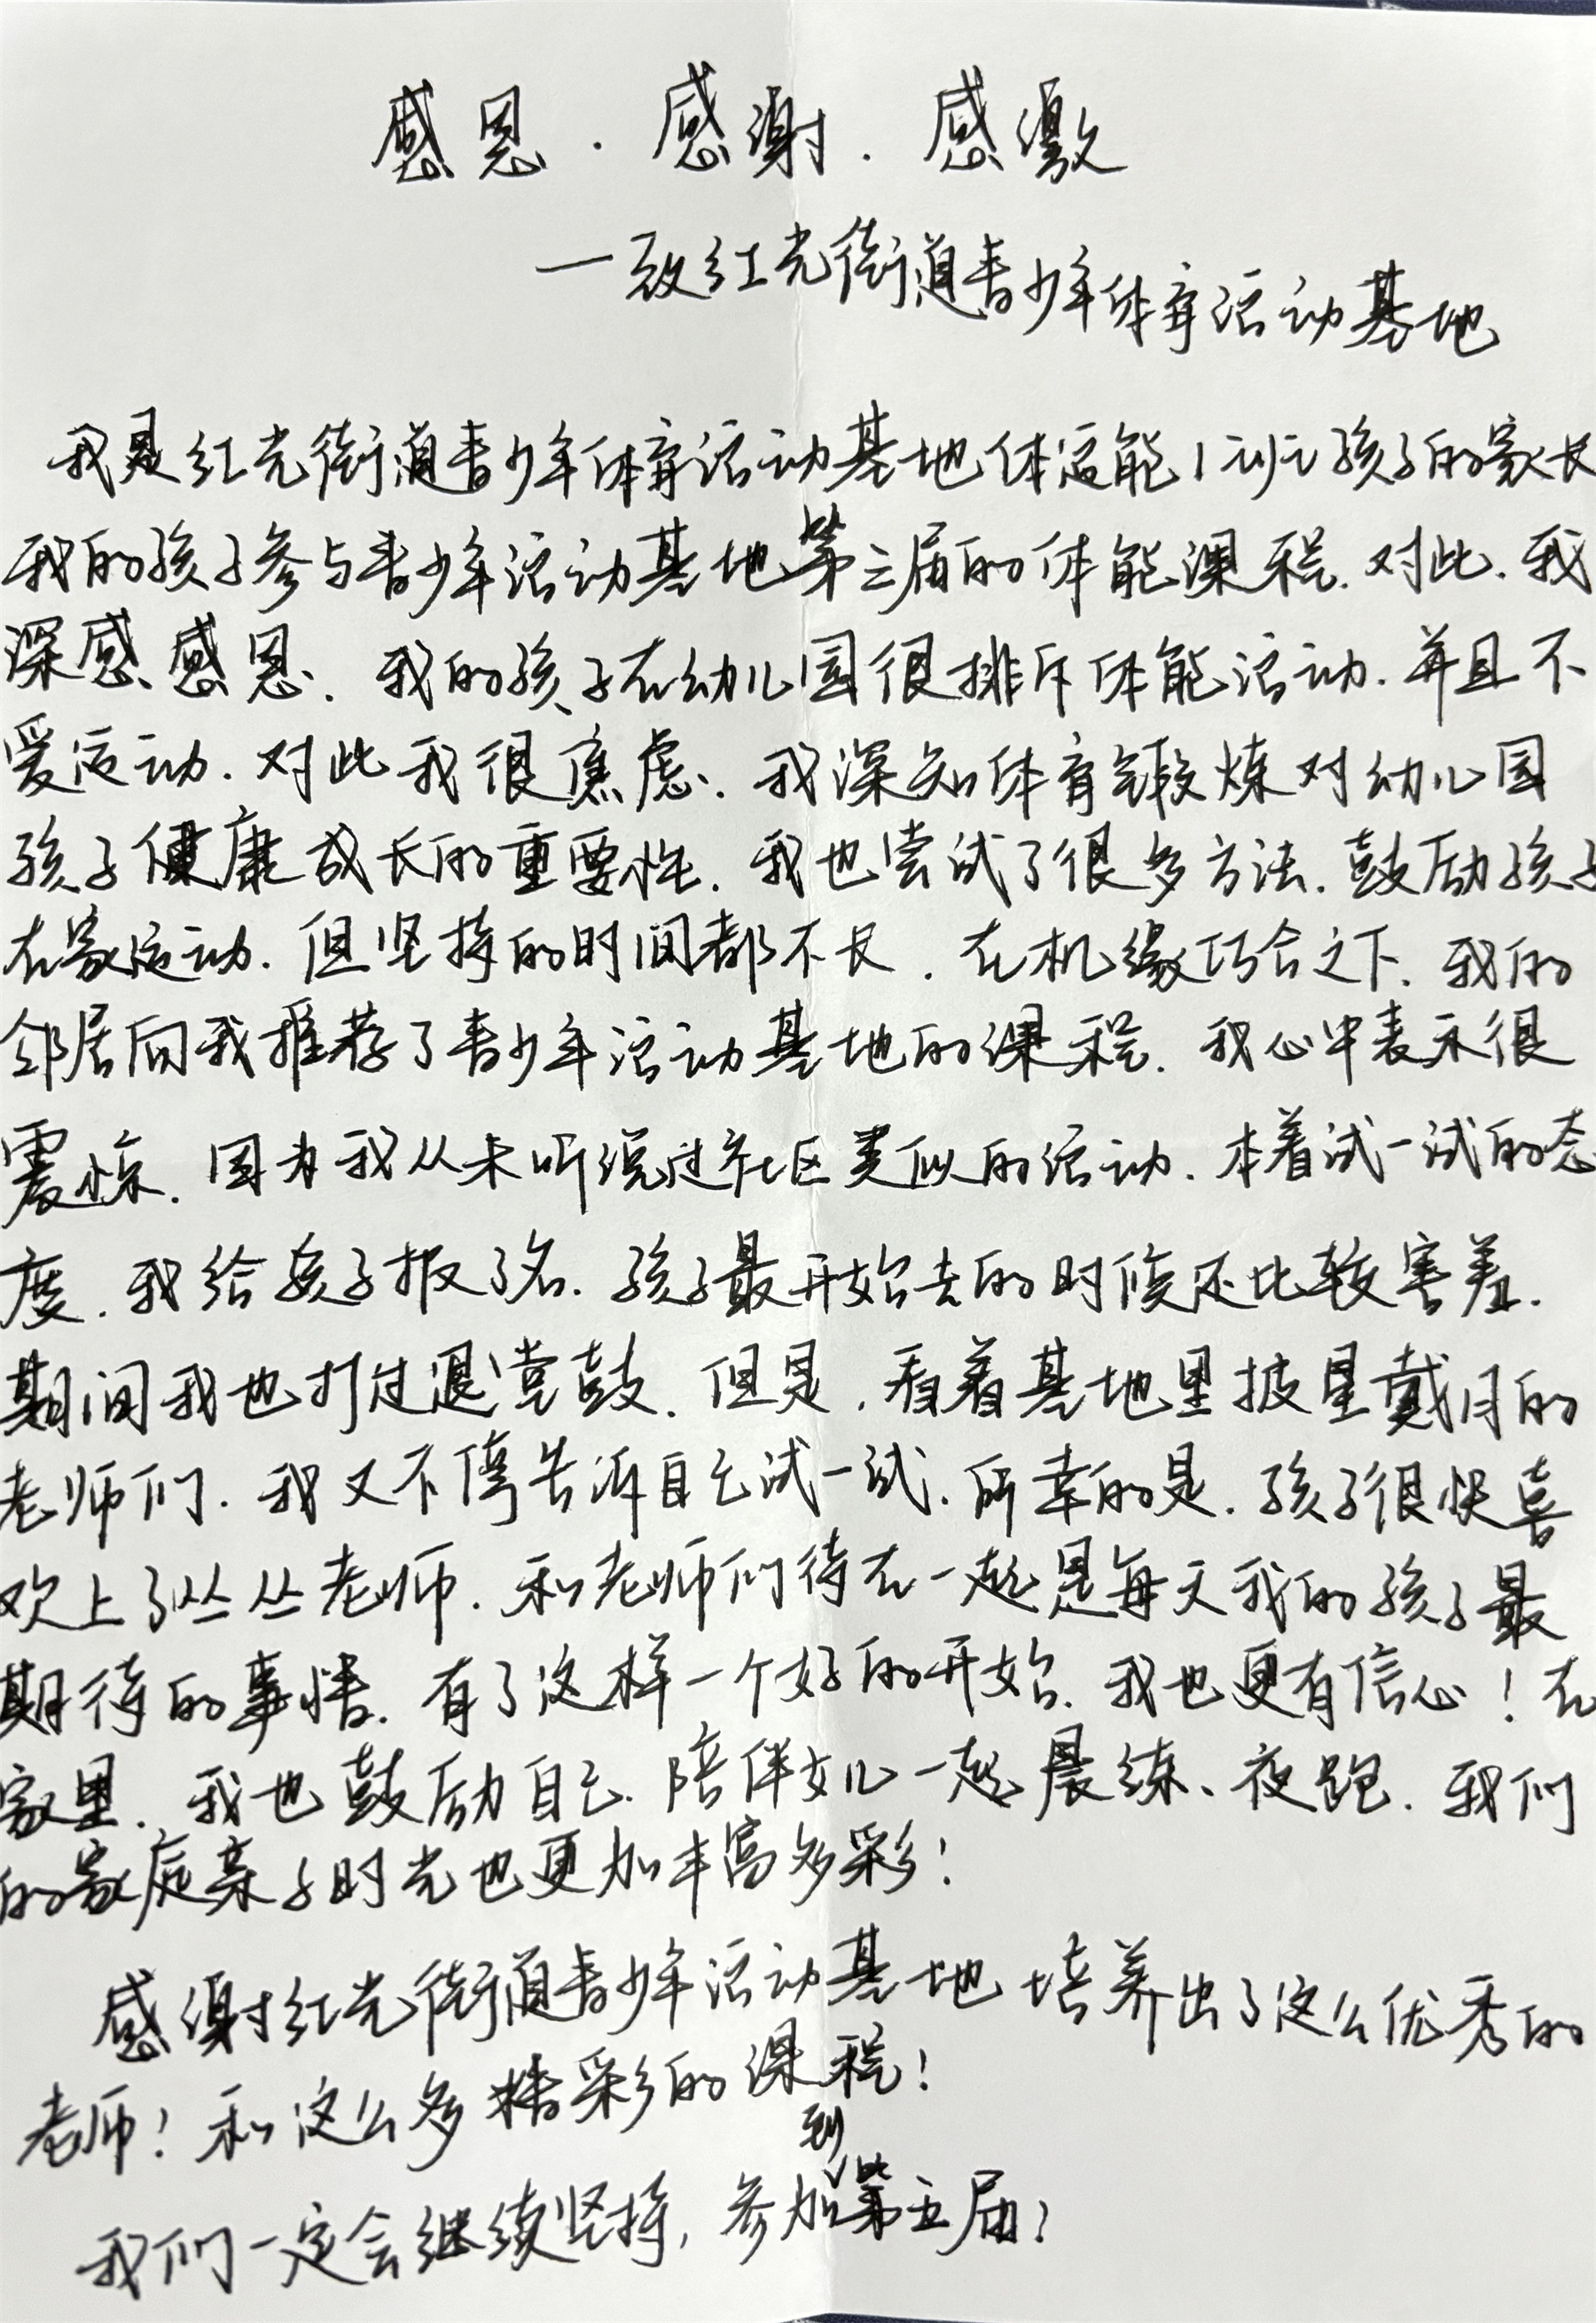 感恩·感谢·感激
一致红光街道青少年体育活动基地
我是红光街道青少年体育活动基地体适能1班孩子的家长
我的孩子参与青少年活动基地第三届的体能课程.对此.我
深感感恩.我的孩子在幼儿园很排斥体能活动.并且不
爱运动.对此我很焦虑.我深知体育锻炼对幼儿园
孩子健康成长的重要性.我也尝试了很多方法.鼓励孩子
在家运动.但坚持的时间都不长.在机缘巧合之下.我的
邻居向我推荐了青少年活动基地的课程.我心中表示很
震惊.因为我从未听说过社区类似的活动.本着试一试的态
度.我给孩子报了名.孩子最开始去的时候还比较害羞.
期间我也打过退堂鼓.但是.看着基地里披星戴月的
老师们.我又不停告诉自己试一试.所幸的是.孩子很快喜
欢上了丛丛老师.和老师们待在一起是每天我的孩子最
期待的事情.有了这样一个好的开始.我也更有信心!在
家里.我也鼓励自己.陪伴女儿一起晨练、夜跑.我们
的家庭亲子时光也更加丰富多彩!
感谢红光街道青少年活动基地培养出了这么优秀的
老师!和这么多精彩的课程!
我们一定会继续坚持,参加到第五届!